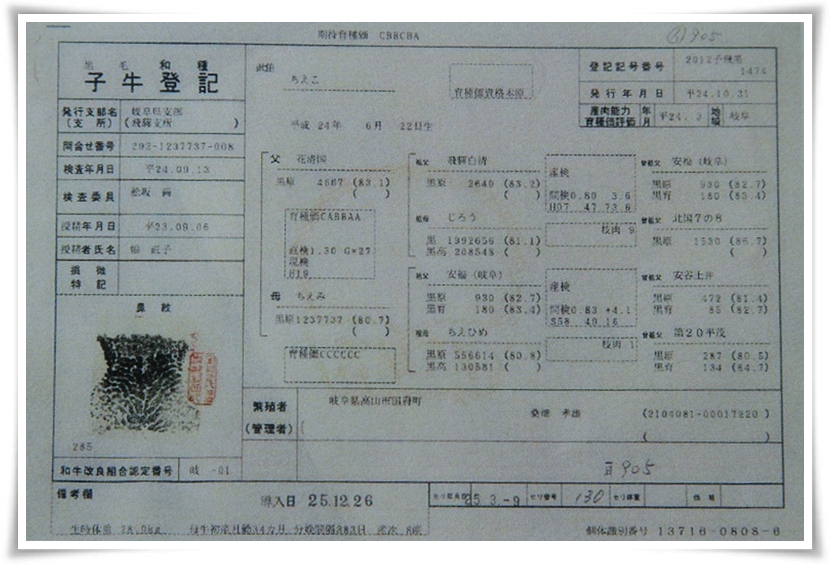 期待育種価 CBBCBA
905
黒毛和種
子牛登記
登記記号番号 2012子機黒 1474
発行年月日 平24.10.31
産肉能力育種価評価 年月 平24.3 地域 岐阜
発行支部名 岐阜県支部
(支所) (飛騨支所)
問合せ番号 292-1237737-008
検査年月日 平24.09.13
検査委員 松坂
授精年月日 平23.09.06
授精者氏名 直子
損徴
特記
鼻紋
285
和牛改良組合認定番号 岐 -01
ちえこ
育種価資格本原
平成 24年 6月 22日生
父 花清国
黒原 4667 (83.1)
( )
育種価CABBAA
直検1.30 G*27
現検
H19
母 ちえみ
黒原1237737 (80.7)
( )
育種価CCCCCC
祖父 飛騨白清
黒原 2640 (83.2)
( )
産検
間検0.80 3.6
H07 47 73.6
祖母 じろう
黒 1992656 (81.1)
黒高 208548 ( )
枝肉 9
祖父 安福 (岐阜)
黒原 930 (82.7)
黒育 180 (83.4)
産検
間検0.83 +4.1
S58 49.16
祖母 ちえひめ
黒原 556614 (80.8)
黒高 130581 ( )
枝肉 1
曽祖父 安福 (岐阜)
黒原 930 (82.7)
黒育 180 (83.4)
曽祖父 北国7の8
黒原 1530 (86.7)
( )
曽祖父 安谷土井
黒原 472 (81.4)
黒育 85 (82.7)
曽祖父 第20平茂
黒原 287 (80.5)
黒育 134 (84.7)
繁殖者 岐阜県高山市国府町
桑畑 孝雄 (2104081-00017220 )
(管理者) ( )
905
備考欄
導入日 25.12.26
25.3.-9 セリ番号 130 セリ体重 価格
生時体重 28.0kg 母牛初産月齢34カ月 分娩間隔383日 産次 8産
個体識別番号 13716-0808-6